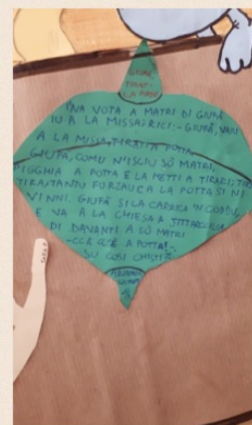 GIUFÀ
TIRATI
LA PORTA
'NA VOTA A MATRI DI GIUFÀ
IU A LA MISSA E RICI:- GIUFÀ, VAIU
A LA MISSA, TIRATI A PORTA
GIUFÀ, COMU N'ISCIU SÒ MATRI,
PIGGHIA A PORTA E LA METTI A TIRARI, TIRA
TIRA, TANTU FORZAU CA LA PORTA SI NI
VINNI. GIUFÀ SI LA CARRICA 'N CODDU
E VA A LA CHIESA A JITTARICCILLA
DI DAVANTI A SÒ MATRI
-CCÀ C'È A PORTA!-.
SU COSI CHISTI?